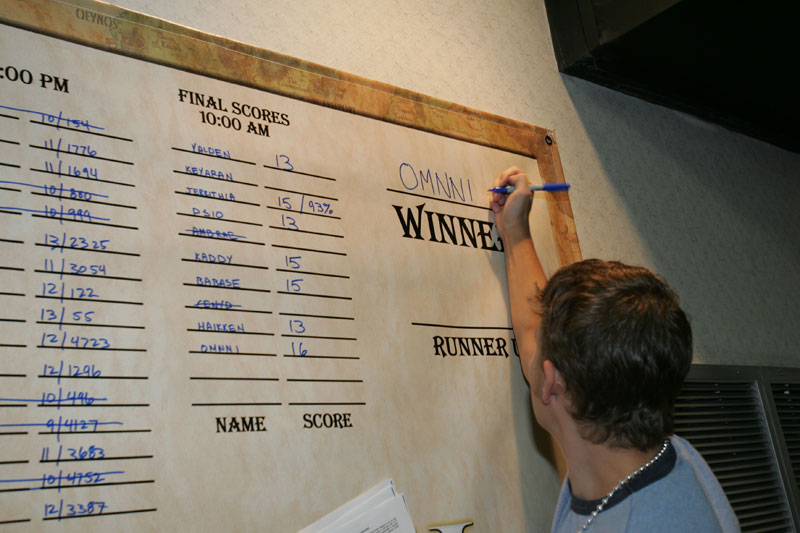 :00 PM
10/154
11/1776
11/1694
10/800
10/999
13/2325
11/3054
12/122
13/55
12/4723
12/1296
10/496
9/4127
11/3683
10/4752
12/3387
FINAL SCORES
10:00 AM
YALDEN 13
KEYARAN
TERRITHIA 15/93%
PSIO 13
AMBRAE
KADDY 15
BABASE 15
HAIKKEN 13
OMNNI 16
NAME SCORE
OMNNI
WINNE
RUNNER U